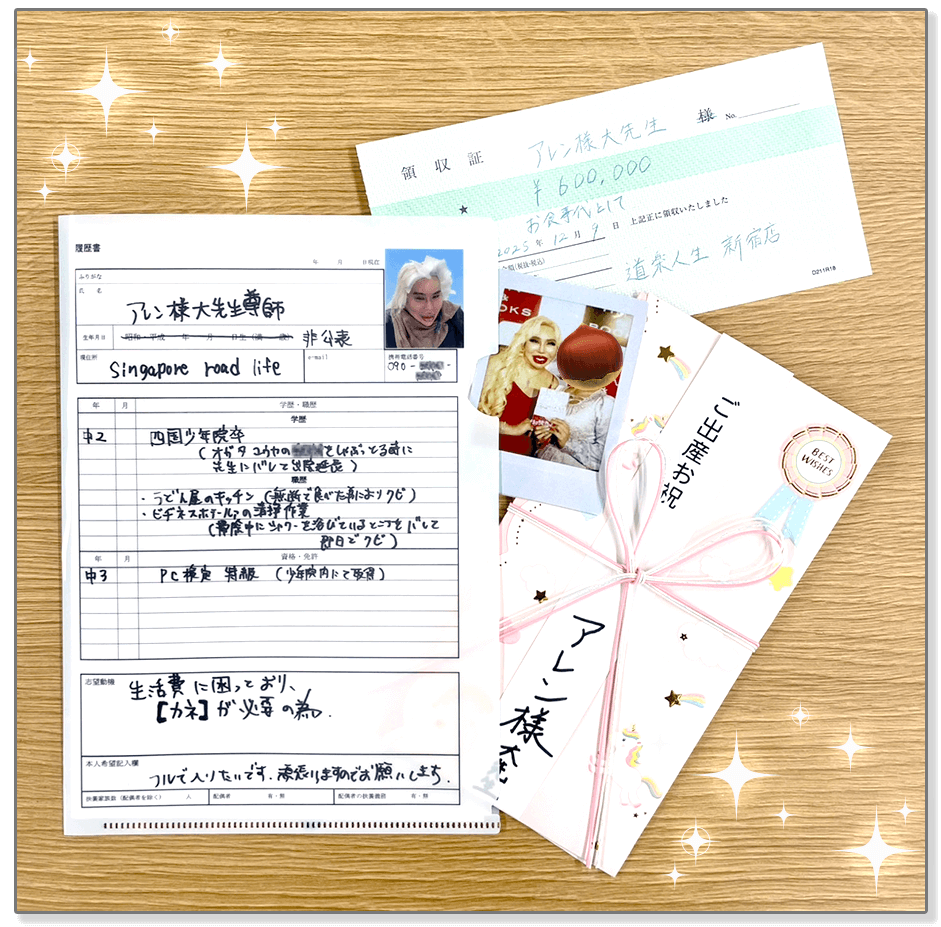 領収証 アレン様大先生 様 No.
¥600,000
お食事代として
2025年 12月 9日 上記正に領収いたしました
金額(税抜・税込)
道楽人生 新宿店
D211R18
履歴書
年 月 日現在
ふりがな
氏 名
アレン様大先生尊師
生年月日 昭和・平成 年 月 日生(満 歳) 非公表
現住所 e-mail 携帯電話番号
Singapore road life
090- - -
年 月 学歴・職歴
学歴
中2 四国少年院卒
(オガタユウヤの をしゃぶっとる時に
先生にバレて出院延長)
職歴
・うどん屋のキッチン(無断で食べた為によりクビ)
・ビヂネスホテルの清掃作業
(清掃中にシャワーを浴びているところをバレて
即日でクビ)
年 月 資格・免許
中3 PC検定 特級 (少年院内にて取得)
志望動機
生活費に困っており、
【カネ】が必要の為。
本人希望記入欄
フルで入りたいです。頑張りますのでお願いします。
扶養家族数(配偶者を除く) 人 配偶者 有・無 配偶者の扶養義務 有・無
OKS
ご出産お祝
BEST
WISHES
アレン様
大先